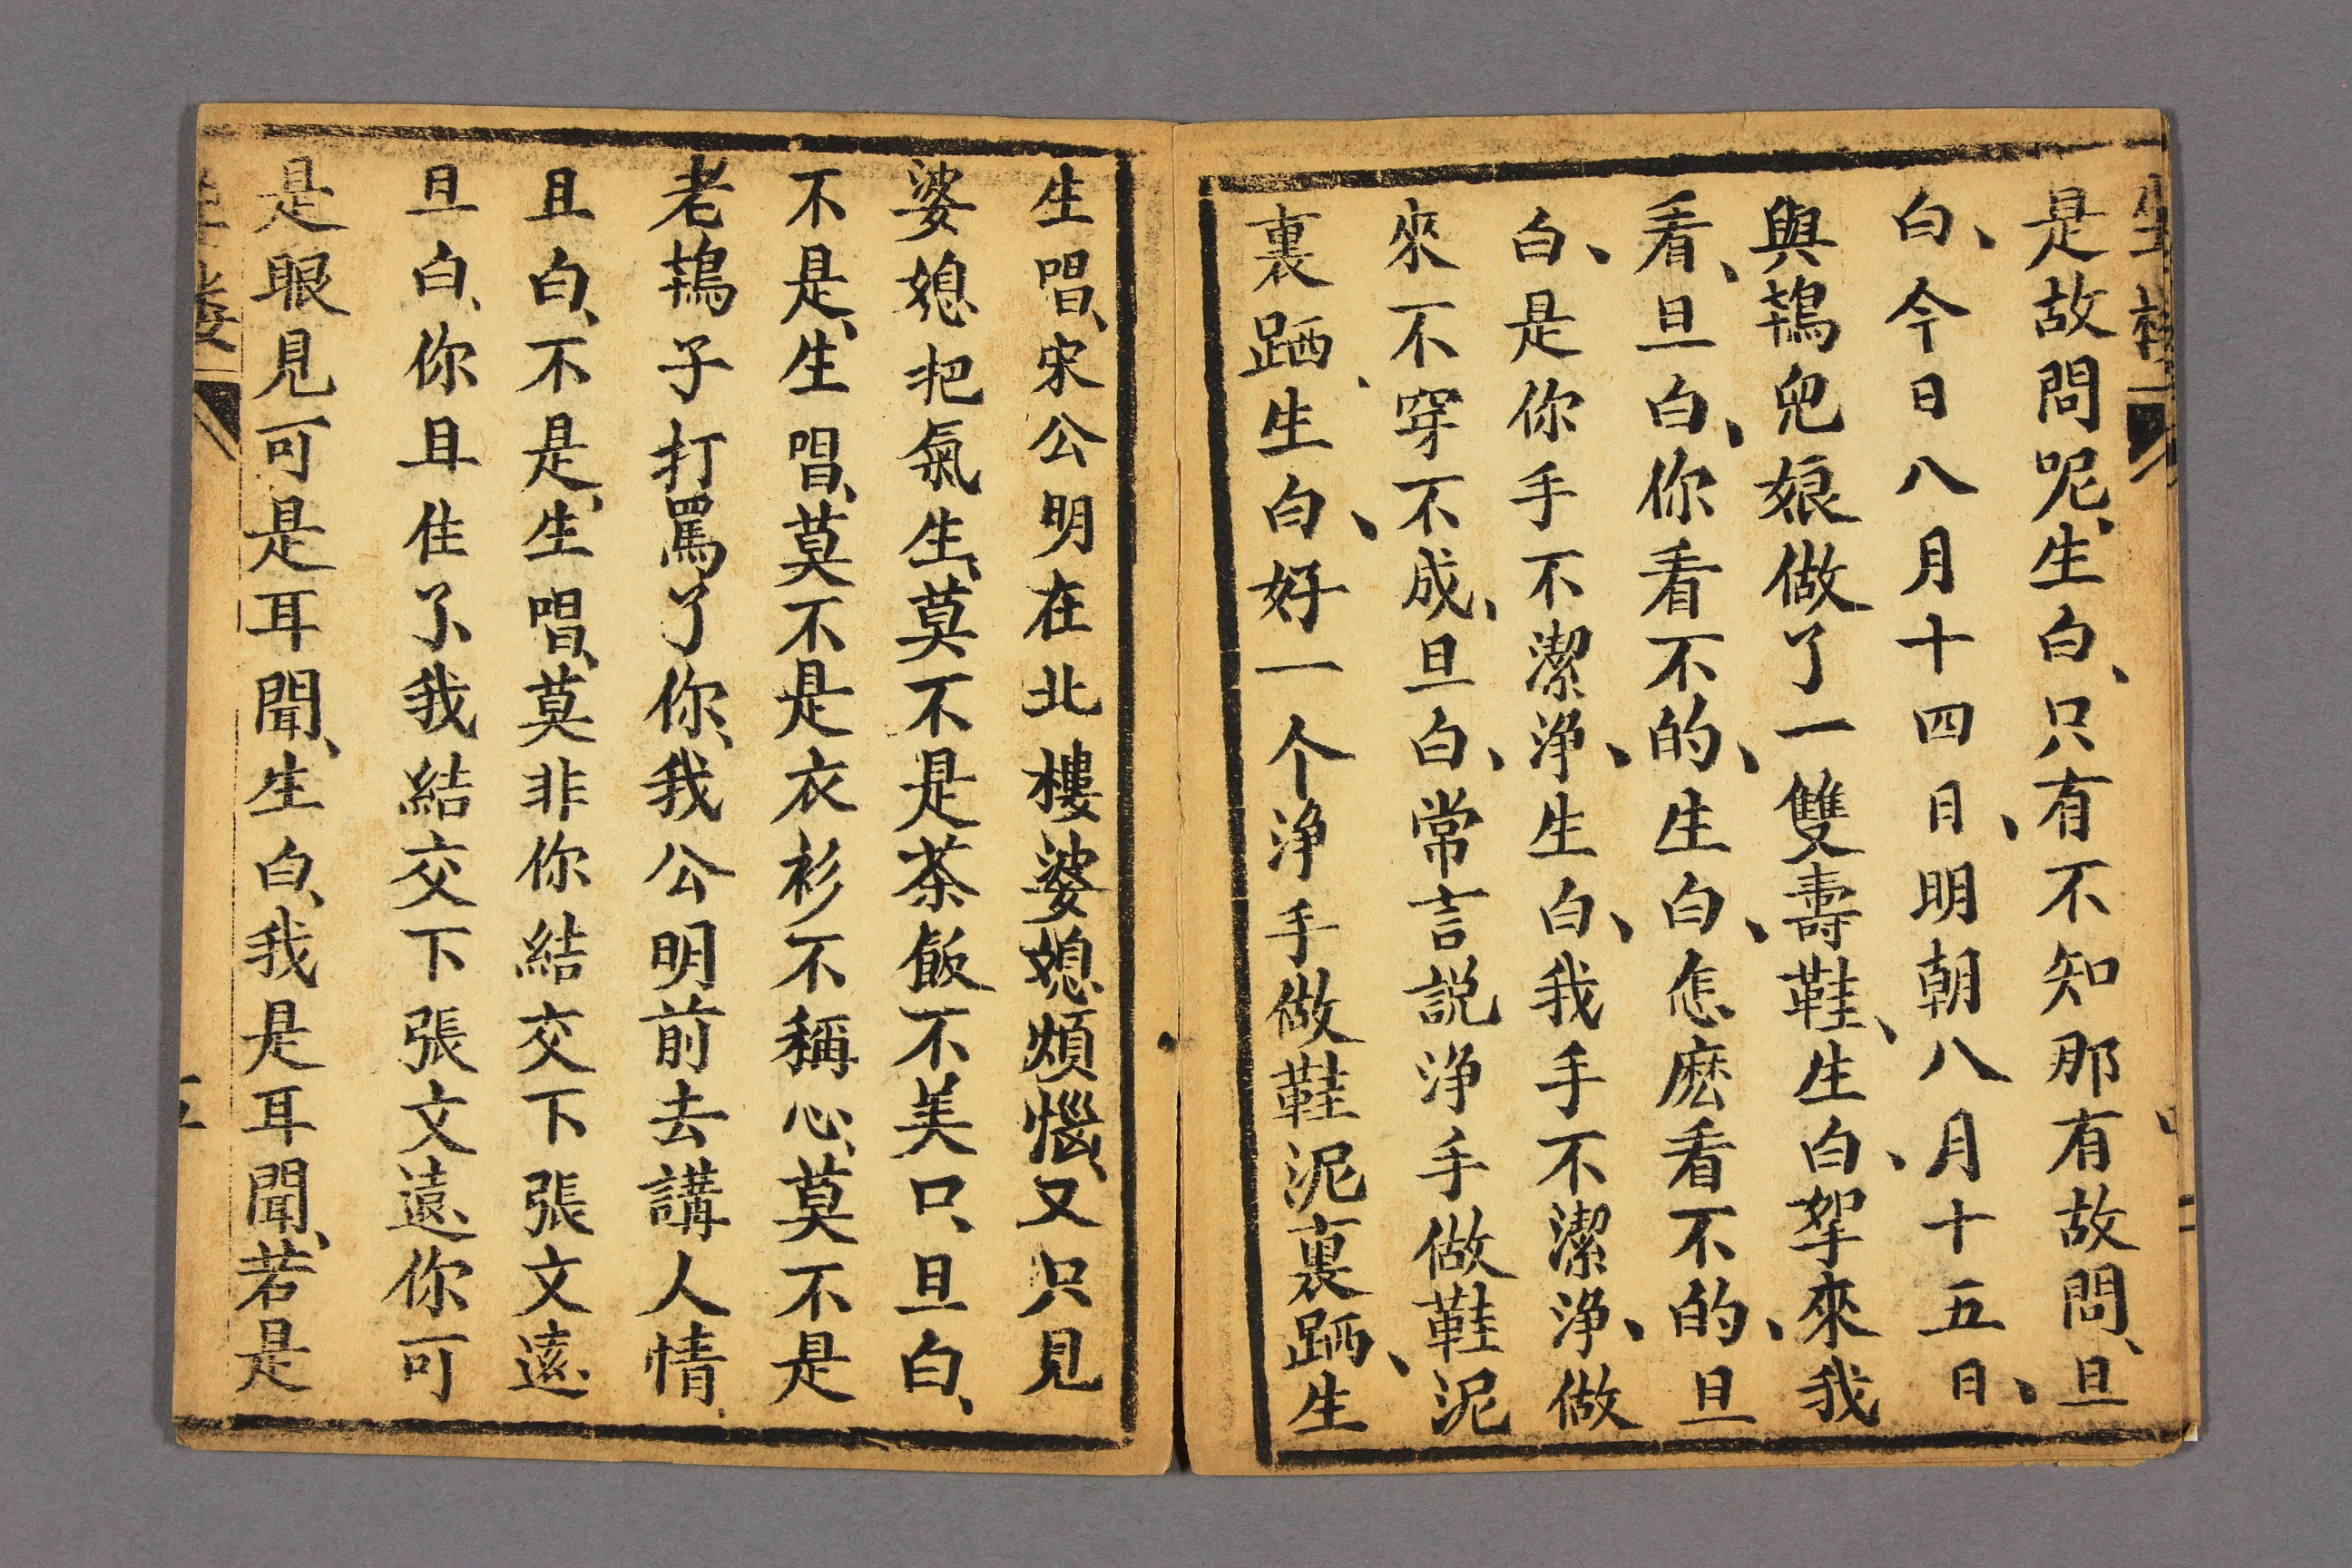 坐樓
是故問呢、生白、只有不知那有故問、旦
白、今日八月十四日、明朝八月十五日、
與鴇兒娘做了一雙壽鞋、生白、拏來我
看、旦白、你看不的、生白、怎麽看不的、旦
白、是你手不潔淨、生白、我手不潔淨、做
來不穿不成、旦白、常言説淨手做鞋泥
裏跴、生白、好一个淨手做鞋泥裏跴、生
生唱、宋公明在北樓婆媳煩惱、又只見
婆媳把氣生、莫不是茶飯不美只、旦白、
不是、生唱、莫不是衣衫不稱心、莫不是
老鴇子打罵了你、我公明前去講人情、
且白、不是、生唱、莫非你結交下張文遠
旦白、你且住了、我結交下張文遠、你可
是眼見可是耳聞、生白、我是耳聞、若是